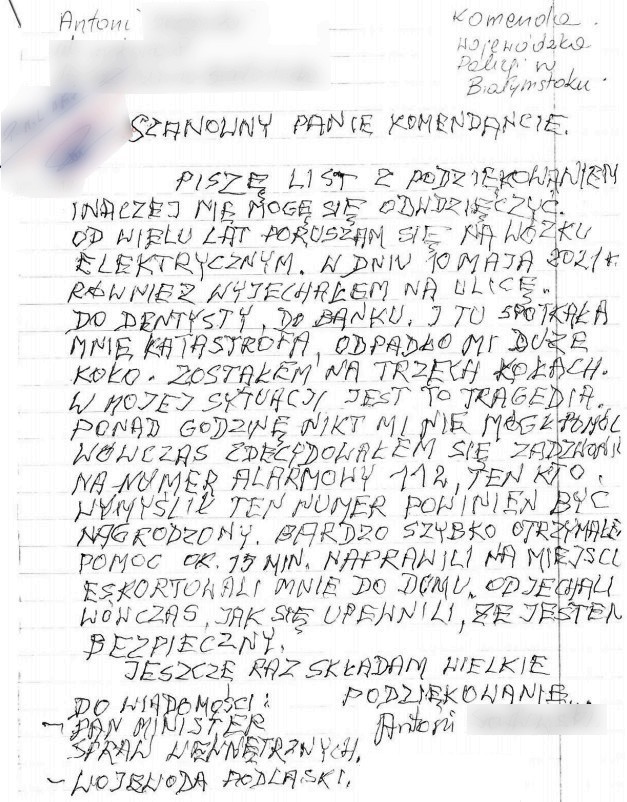 Antoni
Komenda
Wojewódzka
Policji w
Białymstoku.
SZANOWNY PANIE KOMENDANCIE.
PISZĘ LIST Z PODZIĘKOWANIEM
INACZEJ NIE MOGĘ SIĘ ODWDZIĘCZYĆ.
OD WIELU LAT PORUSZAM SIĘ NA WÓZKU
ELEKTRYCZNYM. W DNIU 10 MAJA 2021 r.
RÓWNIEŻ WYJECHAŁEM NA ULICĘ.
DO DENTYSTY, DO BANKU. I TU SPOTKAŁA
MNIE KATASTROFA, ODPADŁO MI DUŻE
KOŁO. ZOSTAŁEM NA TRZECH KOŁACH.
W MOJEJ SYTUACJI JEST TO TRAGEDIA.
PONAD GODZINĘ NIKT MI NIE MÓGŁ POMÓC
WÓWCZAS ZDECYDOWAŁEM SIĘ ZADZWONIĆ
NA NUMER ALARMOWY 112, TEN KTO
WYMYŚLIŁ TEN NUMER POWINIEN BYĆ
NAGRODZONY. BARDZO SZYBKO OTRZYMAŁE
POMOC OK. 15 MIN. NAPRAWILI NA MIEJSCU
ESKORTOWALI MNIE DO DOMU. ODJECHALI
WÓWCZAS, JAK SIĘ UPEWNILI, ŻE JESTEM
BEZPIECZNY.
JESZCZE RAZ SKŁADAM WIELKIE
PODZIĘKOWANIE...
Antoni
DO WIADOMOŚCI:
- PAN MINISTER
SPRAW WEWNĘTRZNYCH.
- WOJEWODA PODLASKI.